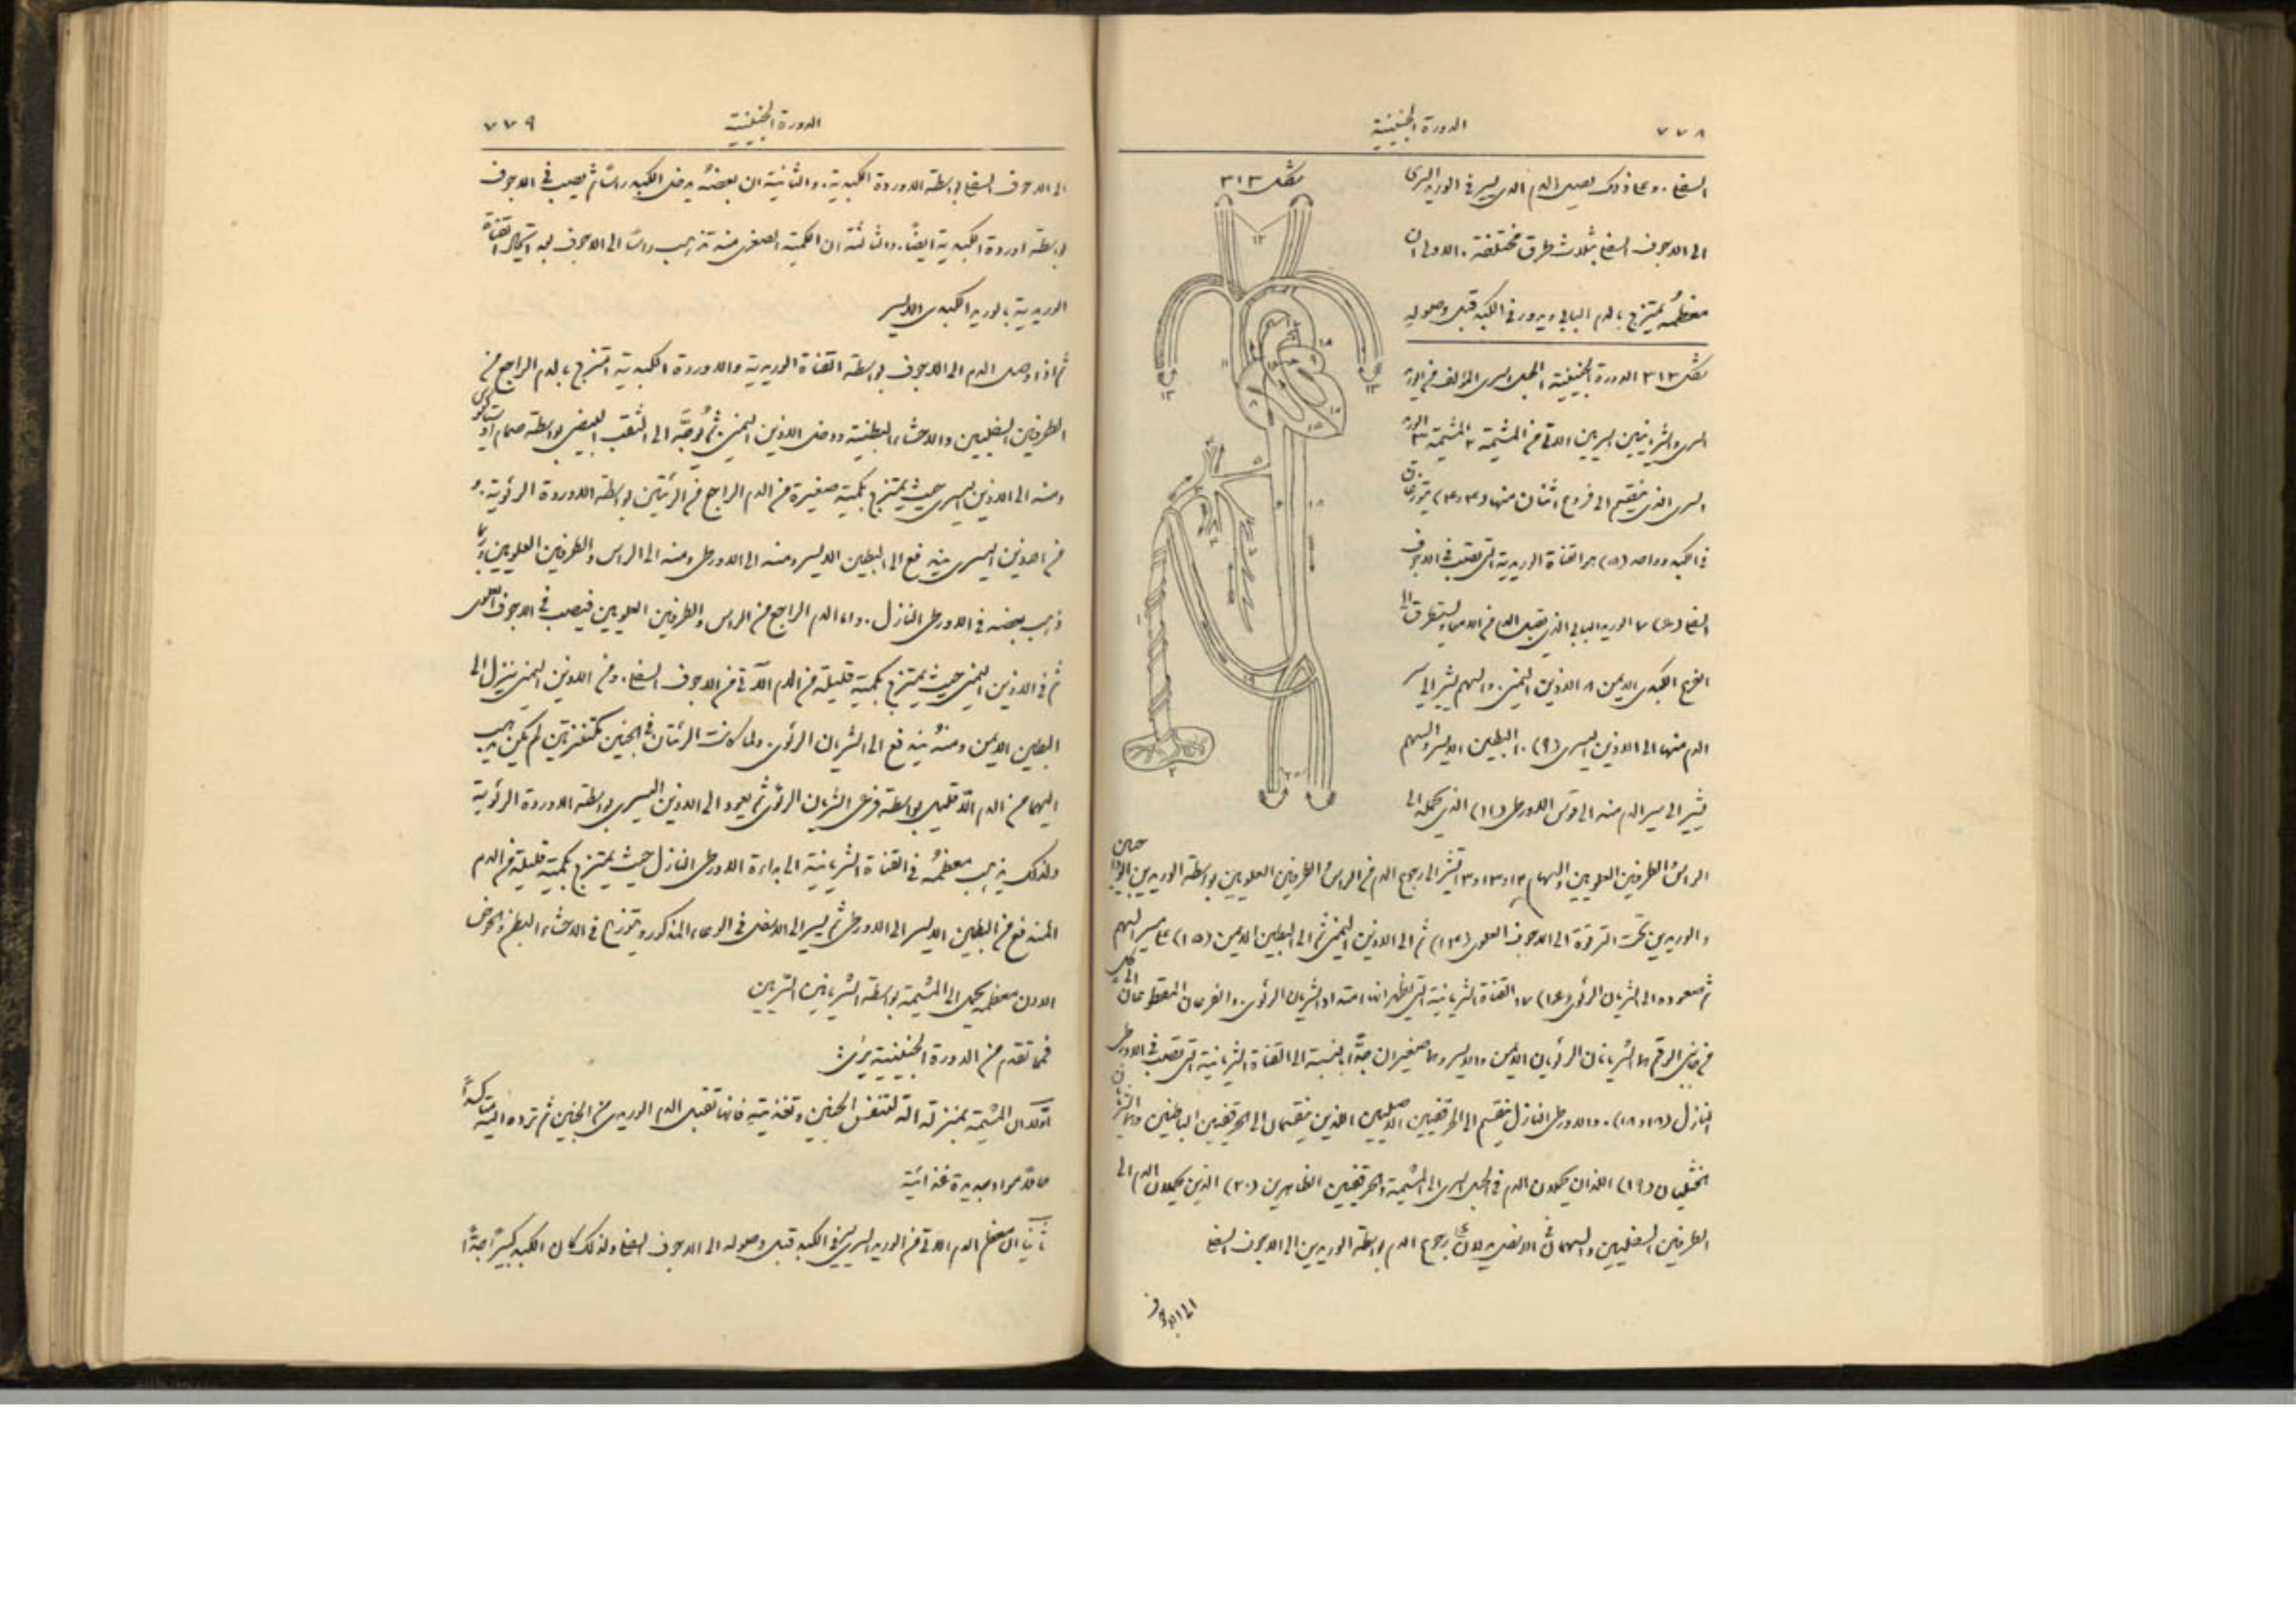 ٧٧٨
الدورة الجنينية
السفلي. وعلى ذلك يصل الدم الذي يسير في الوريد السري
الى الاجوف السفلي بثلاث طرق مختلفة. الاولى ان
معظمه يمتزج بالدم البابي ويدور في الكبد قبل وصوله
شكل ٣١٣
شكل ٣١٣ الدورة الجنينية ١ الحبل السري المؤلف من الوريد
السري والشريانين السريين الآتي من المشيمة ٢ المشيمة ٣ الوريد
السري الذي ينقسم الى فروع اثنان منها (٤ و٤) يتوزعان
في الكبد وواحد (٥) هو القناة الوريدية التي تصب في الاجوف
السفلي (٦) ٧ الوريد البابي الذي يقبل الدم من الامعاء
الفرع الكبدي الايمن ٨ الاذين اليمنى. والسهم يشير الى سير
الدم منها الى الاذين اليسرى (٩) ١٠ البطين الايسر والسهم
يشير الى سير الدم منه الى قوس الاورطى (١١) الذي يحمله الى
الراس والطرفين العلويين والسهام ١٢ و١٣ تشير الى رجوع الدم من الراس والطرفين العلويين بواسطة الوريدين الوداجيين
والوريدين تحت الترقوة الى الاجوف العلوي (١٤) ثم الى الاذين اليمنى ثم الى البطين الايمن (١٥) على مسير السهم
ثم صعوده الى الشريان الرئوي (١٦) ١٧ القناة الشريانية التي يظهر انها امتداد الشريان الرئوي. والفرعان المقطوعان
من جانبي الرقم هما الشريانان الرئويان الايمن والايسر وهما صغيران جدًّا بالنسبة الى القناة الشريانية التي تصب في الاورطى
النازل (١٨ و١٨). والاورطى النازل ينقسم الى الحرقفيين الاصليين اللذين ينقسمان الى الحرقفيين الباطنين وهما الشريانان
الخثليان (١٩) اللذان يحملان الدم في الحبل السري الى المشيمة والحرقفيين الظاهرين (٢٠) اللذين يحملان الدم الى
الطرفين السفليين والسهمان في الاسفل يدلان على رجوع الدم بواسطة الوريدين الى الاجوف السفلي
الى الاجوف
٧٧٩
الدورة الجنينية
الى الاجوف السفلي بواسطة الاوردة الكبدية. والثانية ان بعضه يدخل الكبد راسًا ثم يصب في الاجوف
بواسطة اوردة الكبدية ايضًا. والثالثة ان الكمية الصغرى منه تذهب راسًا الى الاجوف بعد اشتراك القناة
الوريدية بالوريد الكبدي الايسر
ثم اذا وصل الدم الى الاجوف بواسطة القناة الوريدية والاوردة الكبدية امتزج بالدم الراجع من
الطرفين السفليين والاحشاء البطنية ودخل الاذين اليمنى. ثم توجّه الى الثقب البيضي بواسطة صمام اوستاكيوس
ومنه الى الاذين اليسرى حيث يمتزج بكمية صغيرة من الدم الراجع من الرئتين بواسطة الاوردة الرئوية. و
من الاذين اليسرى يندفع الى البطين الايسر ومنه الى الاورطى ومنه الى الراس والطرفين العلويين وربما
ذهب بعضه في الاورطى النازل. واما الدم الراجع من الراس والطرفين العلويين فيصب في الاجوف العلوي
ثم في الاذين اليمنى حيث يمتزج بكمية قليلة من الدم الآتي من الاجوف السفلي. ومن الاذين اليمنى ينزل الى
البطين الايمن ومنه يندفع الى الشريان الرئوي. ولما كانت الرئتان في الجنين مكتنزتين لم يكن يذهب
اليهما من الدم الا قليل بواسطة فرعي الشريان الرئوي ثم يعود الى الاذين اليسرى بواسطة الاوردة الرئوية
ولذلك يذهب معظمه في القناة الشريانية الى بداءة الاورطى النازل حيث يمتزج بكمية قليلة من الدم
المندفع من البطين الايسر الى الاورطى ثم يسير الى الاسفل في الوعاء المذكور ويتوزع في الاحشاء البطن والحوض
الا ان معظمه يحمل الى المشيمة بواسطة الشريانين السّريين
فمما تقدم من الدورة الجنينية يرى
اولا ان المشيمة بمنزلة آلة لتنفس الجنين وتغذيته فانها تقبل الدم الوريدي من الجنين ثم ترده اليه متاكسدًا
حاملًا مواد جديدة غذائية
ثانيًا ان معظم الدم الآتي من الوريد السري يسير في الكبد قبل وصوله الى الاجوف السفلي ولذلك كان الكبد كبيرًا جدًّا